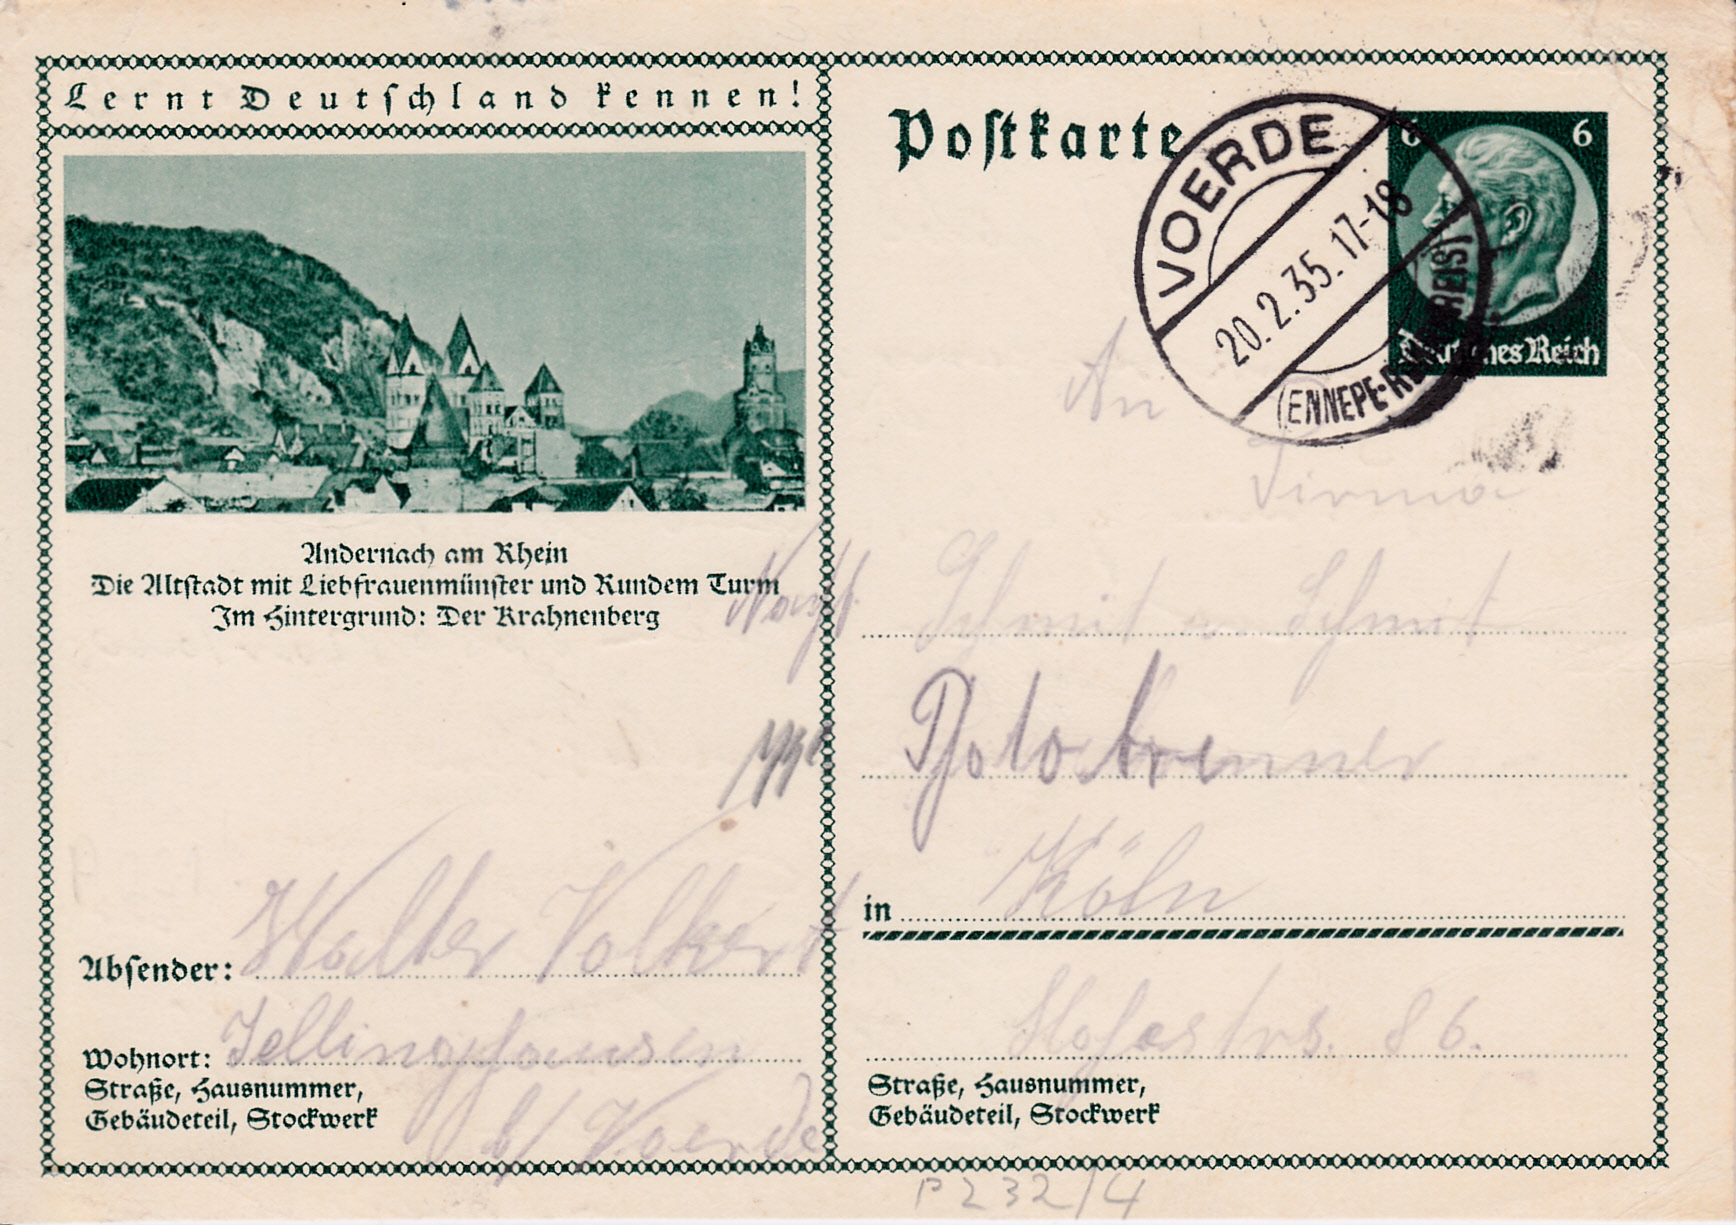 Lernt Deutschland kennen!
Andernach am Rhein
Die Altstadt mit Liebfrauenmünster und Rundem Turm
Im Hintergrund: Der Krahnenberg
Absender: Walter Volkert
Wohnort: Jellinghausen
Straße, Hausnummer,
Gebäudeteil, Stockwerk
b/ Voerde
Postkarte
VOERDE
20.2.35.17-18
(ENNEPE-RUHR-KREIS)
6 6
Deutsches Reich
An
Firma
Schmit u Schmit
Photo
in Köln
Hofestrs. 86.
Straße, Hausnummer,
Gebäudeteil, Stockwerk
P232/4